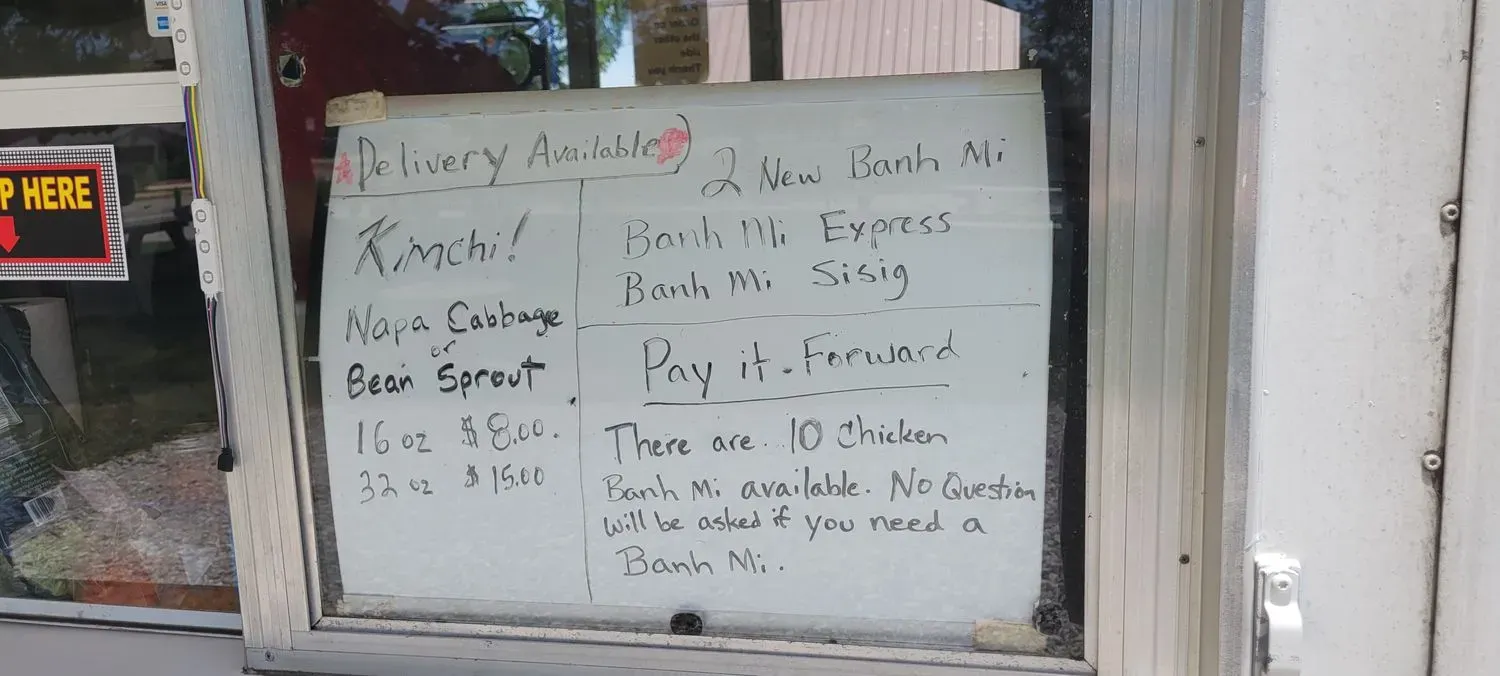 VISA
P HERE
Delivery Available
Kimchi!
Napa Cabbage
or
Bean Sprout
16 oz $8.00.
32 oz $15.00
2 New Banh Mi
Banh Mi Express
Banh Mi Sisig
Pay it. Forward
There are 10 Chicken
Banh Mi available. No Question
will be asked if you need a
Banh Mi.
Order on
the other
side
Thank you